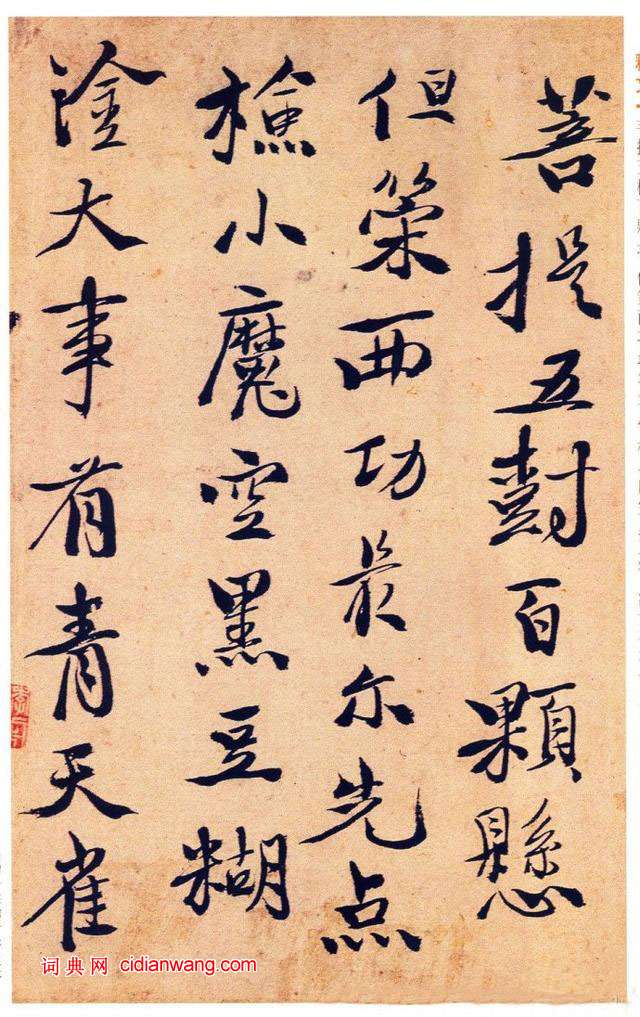 菩提五對百顆懸
但策西功最尔先点
檢小魔空黑豆糊
塗大事有青天雀
词典网 cidianwang.com